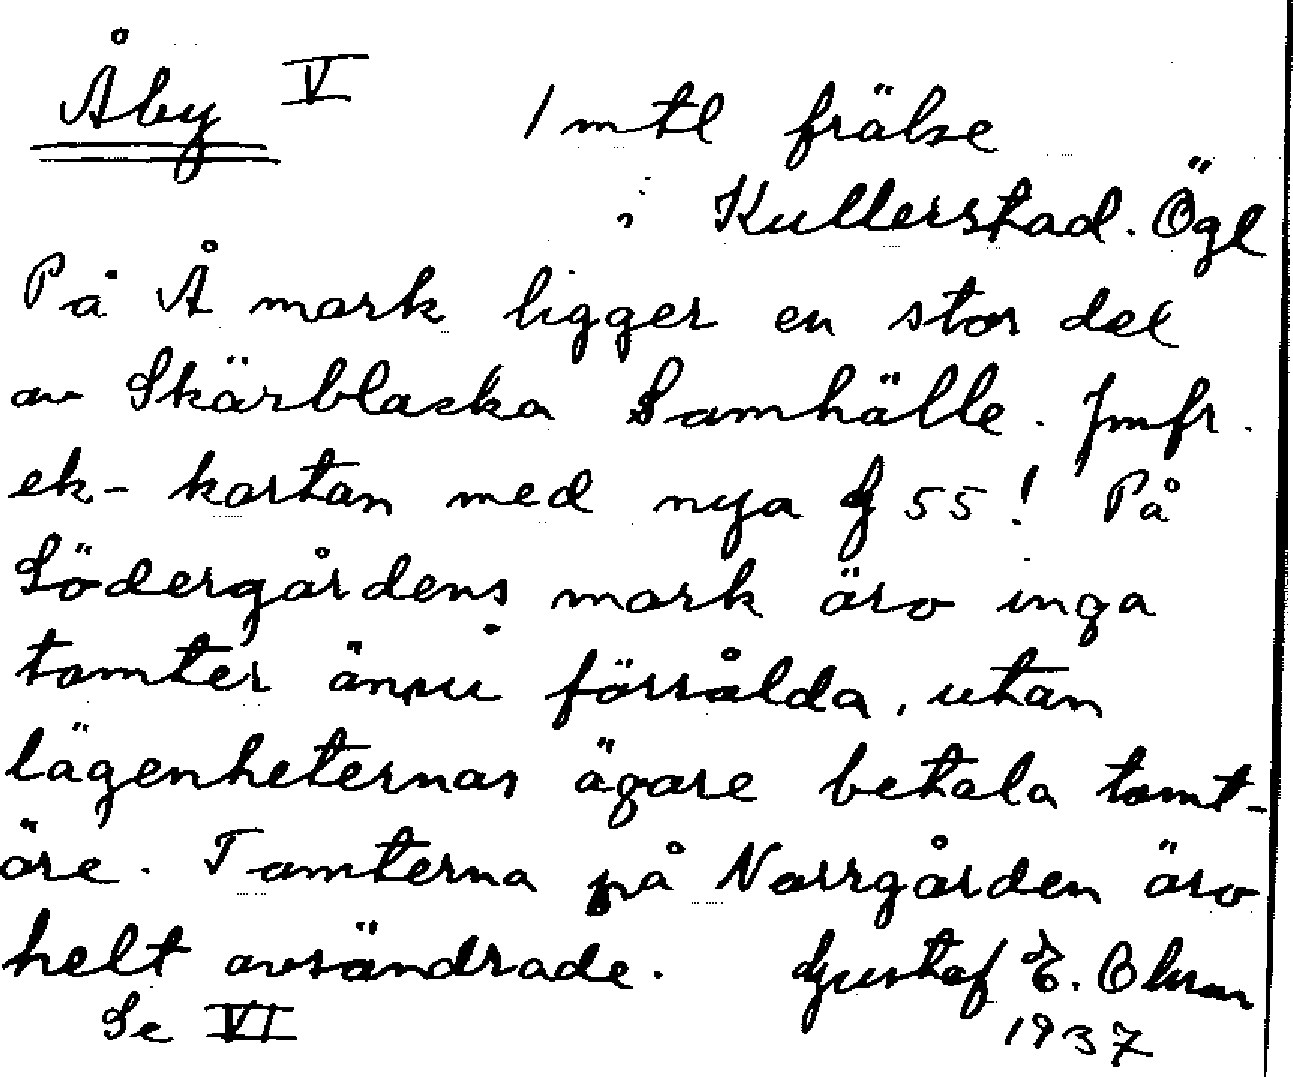 Åby V
1 mtl frälse
i Kullerstad. Ögl
På Å mark ligger en stor del
av Skärblacka Samhälle. Jmfr.
ek-kartan med nya f 55! På
Södergårdens mark äro inga
tomter ännu försålda, utan
lägenheternas ägare betala tomt-
öre. Tomterna på Norrgården äro
helt avsöndrade. Gustaf E.
Se VI 1937